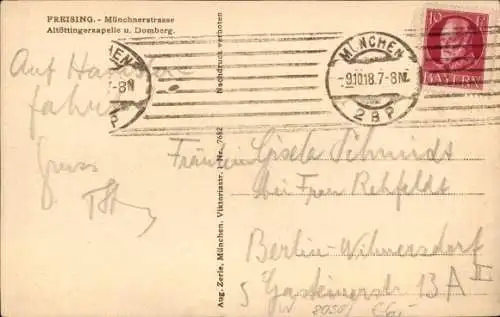 FREISING. - Münchnerstrasse
Altöttingerkapelle u. Domberg.
Auf
fahrt
Gruss
Aug. Zerle, München, Viktoriastr. 1. Nr. 7682 Nachdruck verboten
MÜNCHEN
-9.10.18.7-8N
2 B P
10
BAYERN
Fräulein Gisela Schmidt
bei Frau Rehfeldt
Berlin-Wilmersdorf
Gasteinerstr 13 A III